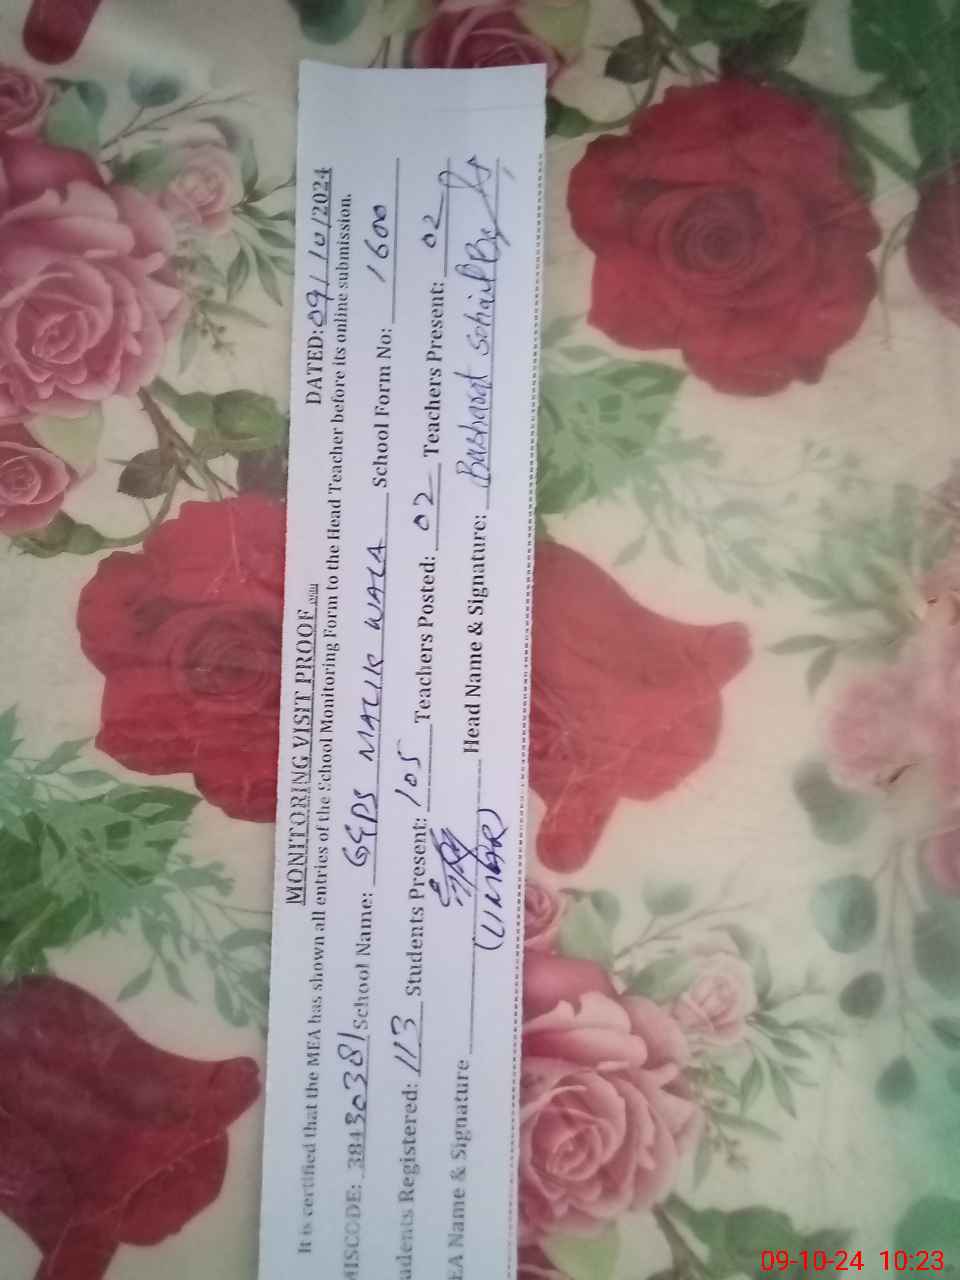 MONITORING VISIT PROOF DATED: 09/10/2024
It is certified that the MEA has shown all entries of the School Monitoring Form to the Head Teacher before its online submission.
MISCODE: 38430381 School Name: GGPS MALIK WALA School Form No: 1600
udents Registered: 113 Students Present: 105 Teachers Posted: 02 Teachers Present: 02
EA Name & Signature (UMAR) Head Name & Signature: Basharat Sohail
09-10-24 10:23